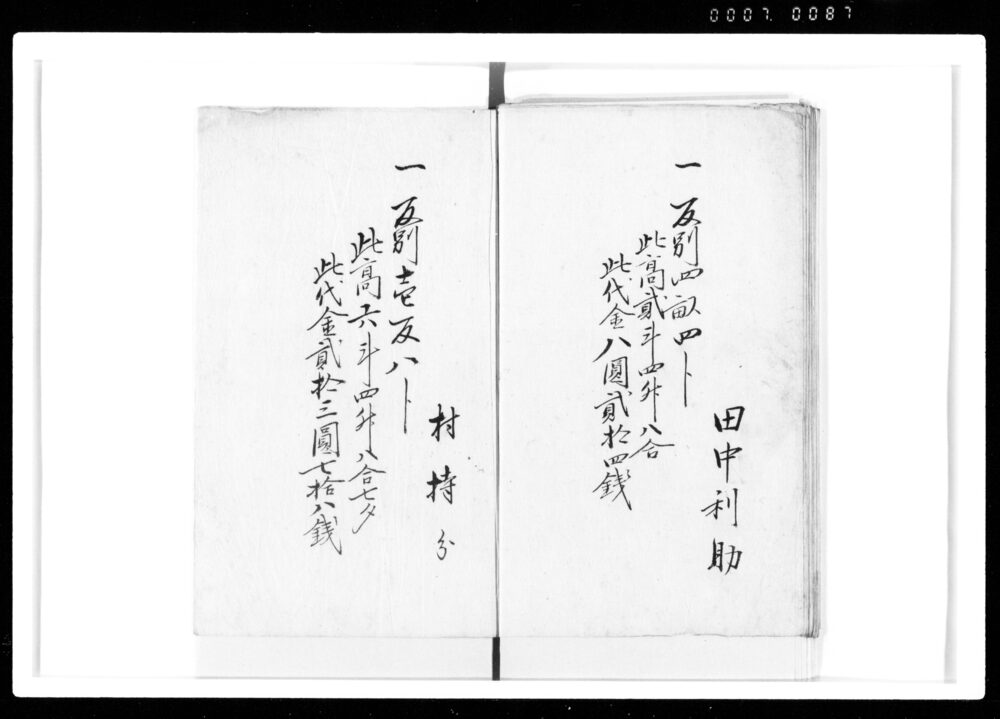 0007. 0087
田中利助
一 反別四畝四卜
此高貳斗四升八合
此代金八圓貳拾四錢
村持分
一 反別壱反八卜
此高六斗四升八合七夕
此代金貳拾三圓七拾八錢